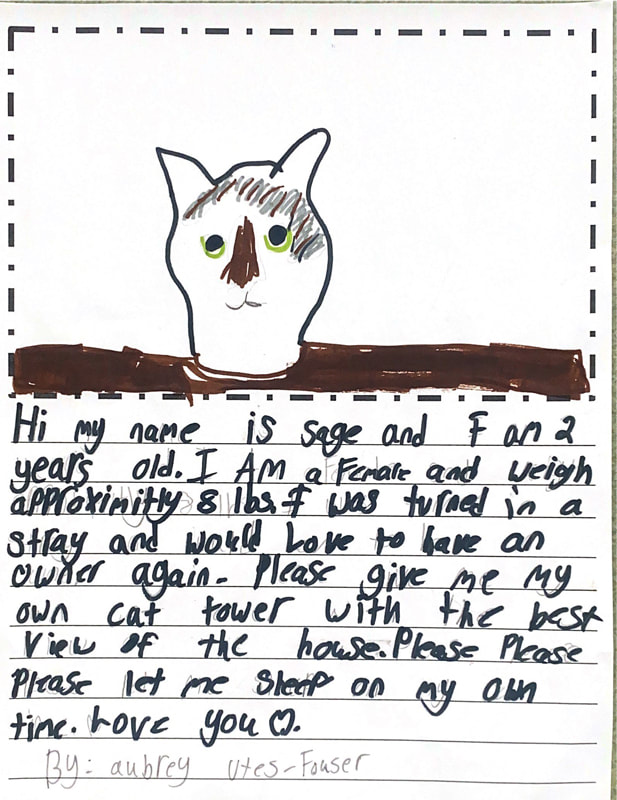 Hi my name is sage and I am 2
years old. I AM a Female and weigh
approximitly 8 lbs. I was turned in a
stray and would Love to have an
owner again. Please give me my
own cat tower with the best
view of the house. Please Please
Please let me sleep on my own
time. Love you ♡.
By: aubrey Utes-Fouser